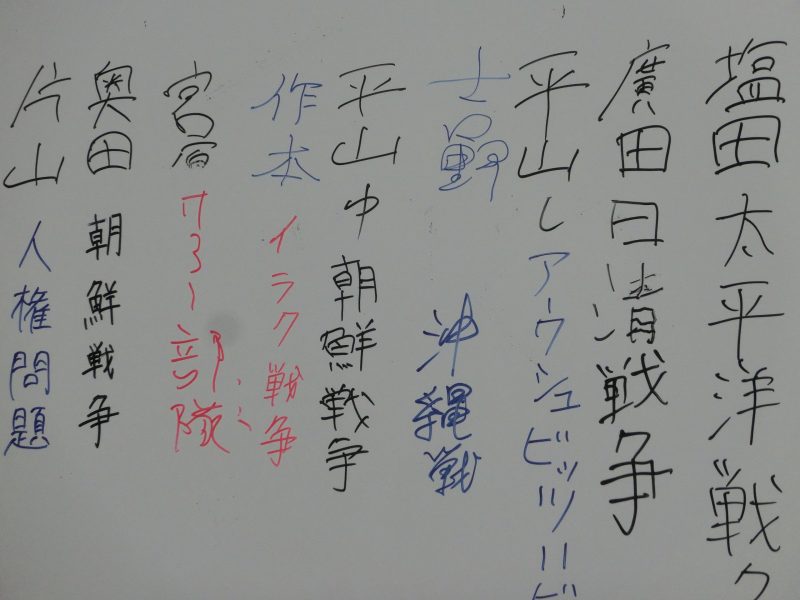 塩田 太平洋戦
廣田 日清戦争
平山し アウシュビッツ=ビ
吉野 沖縄戦
平山ゆ 朝鮮戦争
作本 イラク戦争
部隊
奥田 朝鮮戦争
片山 人権問題